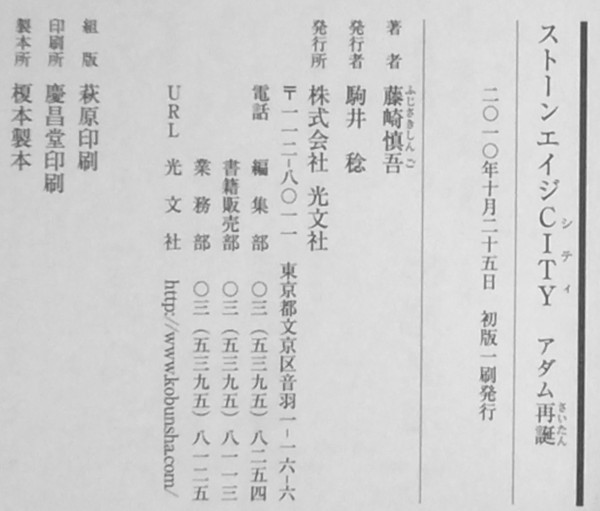 ストーンエイジCITY アダム再誕
シティ さいたん
二〇一〇年十月二十五日 初版一刷発行
著者 藤崎慎吾
ふじさきしんご
発行者 駒井 稔
発行所 株式会社 光文社
〒一一二-八〇一一 東京都文京区音羽一-一六-六
電話 編集部 〇三(五三九五)八二五四
書籍販売部 〇三(五三九五)八一一三
業務部 〇三(五三九五)八一二五
URL 光文社 http://www.kobunsha.com/
組版 萩原印刷
印刷所 慶昌堂印刷
製本所 榎本製本